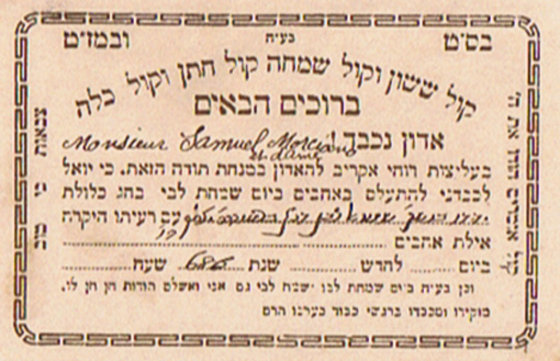 בס״ט בע״ה ובמז״ט
קול ששון וקול שמחה קול חתן וקול כלה
ברוכים הבאים
אדון נכבד!
Monsieur Samuel Morciano
et dame
בעליצות רוחי אקריב להאדון במנחת תודה הזאת. כי יואל
לכבדני להתעלס באהבים ביום שמחת לבי בחג כלולת
עם רעיתו היקרה
אילת אהבים
ביום לחדש שנת 686 שעה
וכן בע״ה ביום שמחת לבו ישבח לבי גם אני ואשלם הודות הן הן לו.
מוקירו ומכבדו ברגשי כבוד כערכו הרם
קול אומרים הודו את ה׳
צבאות כי טוב